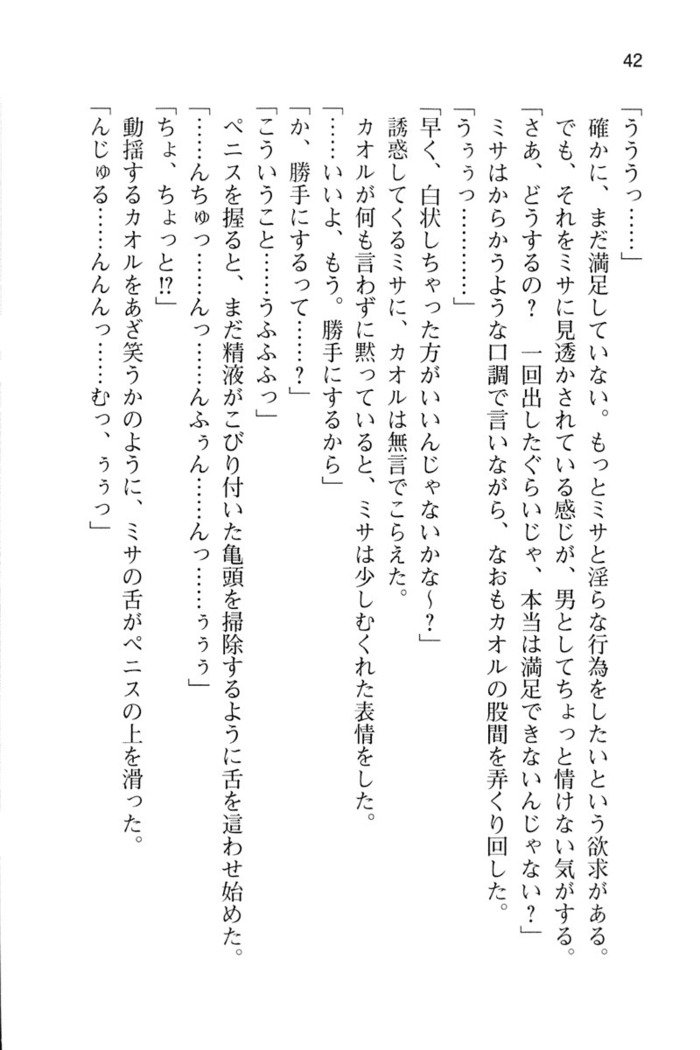 42
「うううっ……」
確かに、まだ満足していない。もっとミサと淫らな行為をしたいという欲求がある。
でも、それをミサに見透かされている感じが、男としてちょっと情けない気がする。
「さあ、どうするの？　一回出したぐらいじゃ、本当は満足できないんじゃない？」
ミサはからかうような口調で言いながら、なおもカオルの股間を弄くり回した。
「うぅぅっ…………」
「早く、白状しちゃった方がいいんじゃないかな～？」
誘惑してくるミサに、カオルは無言でこらえた。
カオルが何も言わずに黙っていると、ミサは少しむくれた表情をした。
「……いいよ、もう。勝手にするから」
「か、勝手にするって……？」
「こういうこと……うふふふっ」
ペニスを握ると、まだ精液がこびり付いた亀頭を掃除するように舌を這わせ始めた。
「……んちゅっ……んっ……んふぅん……んっ……ぅぅぅ」
「ちょ、ちょっと!?」
動揺するカオルをあざ笑うかのように、ミサの舌がペニスの上を滑った。
「んじゅる……んんんっ……むっ、ぅぅっ」